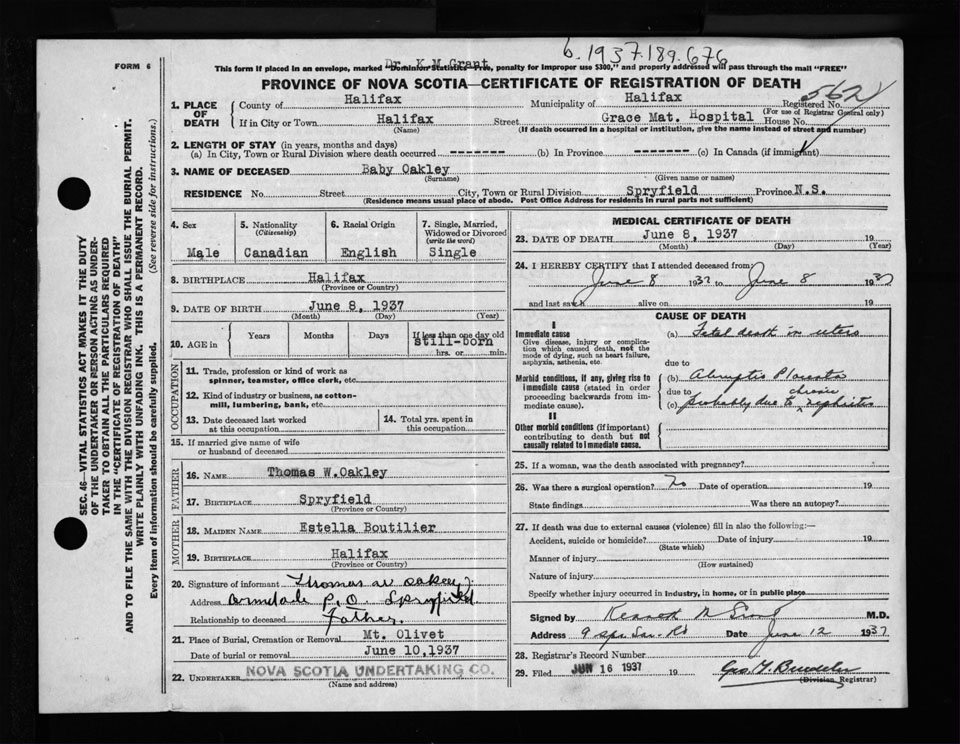 b. 1937.189.676
FORM 6
Dr. K.M.Grant
This form if placed in an envelope, marked "Dominion Statistics—Free, penalty for improper use $300," and properly addressed will pass through the mail "FREE"
PROVINCE OF NOVA SCOTIA—CERTIFICATE OF REGISTRATION OF DEATH
562
1. PLACE OF DEATH
County of Halifax Municipality of Halifax Registered No.
(For use of Registrar General only)
If in City or Town Halifax Street Grace Mat. Hospital House No.
(Name) (If death occurred in a hospital or institution, give the name instead of street and number)
2. LENGTH OF STAY (in years, months and days)
(a) In City, Town or Rural Division where death occurred -------- (b) In Province -------- (c) In Canada (if immigrant)
3. NAME OF DECEASED Baby Oakley
(Surname) (Given name or names)
RESIDENCE No. Street City, Town or Rural Division Spryfield Province N.S.
(Residence means usual place of abode. Post Office Address for residents in rural parts not sufficient)
4. Sex
Male
5. Nationality
(Citizenship)
Canadian
6. Racial Origin
English
7. Single, Married, Widowed or Divorced
(write the word)
Single
8. BIRTHPLACE Halifax
(Province or Country)
9. DATE OF BIRTH June 8, 1937
(Month) (Day) (Year)
10. AGE in
Years Months Days If less than one day old
still-born
hrs. or min.
OCCUPATION
11. Trade, profession or kind of work as
spinner, teamster, office clerk, etc.
12. Kind of industry or business, as cotton-
mill, lumbering, bank, etc.
13. Date deceased last worked
at this occupation
14. Total yrs. spent in
this occupation
15. If married give name of wife
or husband of deceased
FATHER
16. NAME Thomas W.Oakley
17. BIRTHPLACE Spryfield
(Province or Country)
MOTHER
18. MAIDEN NAME Estella Boutilier
19. BIRTHPLACE Halifax
(Province or Country)
20. Signature of informant Thomas W Oakley
Address Armdale P.O. Spryfield
Relationship to deceased Father.
21. Place of Burial, Cremation or Removal Mt. Olivet
Date of burial or removal June 10,1937
22. UNDERTAKER NOVA SCOTIA UNDERTAKING CO.
(Name and address)
MEDICAL CERTIFICATE OF DEATH
23. DATE OF DEATH June 8, 1937 19
(Month) (Day) (Year)
24. I HEREBY CERTIFY that I attended deceased from
June 8 1937 to June 8 1937
and last saw h alive on 19
CAUSE OF DEATH
I
Immediate cause
Give disease, injury or complica-
tion which caused death, not the
mode of dying, such as heart failure,
asphyxia, asthenia, etc.
(a) Fetal death in utero
due to
Morbid conditions, if any, giving rise to
immediate cause (stated in order
proceeding backwards from im-
mediate cause).
(b) Abruptio Placenta
due to chronic
(c) probably due to nephritis
II
Other morbid conditions (if important)
contributing to death but not
causally related to immediate cause.
25. If a woman, was the death associated with pregnancy?
26. Was there a surgical operation? no Date of operation 19
State findings Was there an autopsy?
27. If death was due to external causes (violence) fill in also the following:—
Accident, suicide or homicide? Date of injury 19
(State which)
Manner of injury
(How sustained)
Nature of injury
Specify whether injury occurred in Industry, in home, or in public place
Signed by Kenneth M Grant M.D.
Address 9 Spr. Gar. Rd Date June 12 1937
28. Registrar's Record Number
29. Filed JUN 16 1937 19
(Division Registrar)
SEC. 46—VITAL STATISTICS ACT MAKES IT THE DUTY
OF THE UNDERTAKER OR PERSON ACTING AS UNDER-
TAKER TO OBTAIN ALL THE PARTICULARS REQUIRED
IN THE "CERTIFICATE OF REGISTRATION OF DEATH"
AND TO FILE THE SAME WITH THE DIVISION REGISTRAR WHO SHALL ISSUE THE BURIAL PERMIT.
WRITE PLAINLY WITH UNFADING INK. THIS IS A PERMANENT RECORD.
Every item of information should be carefully supplied. (See reverse side for instructions.)